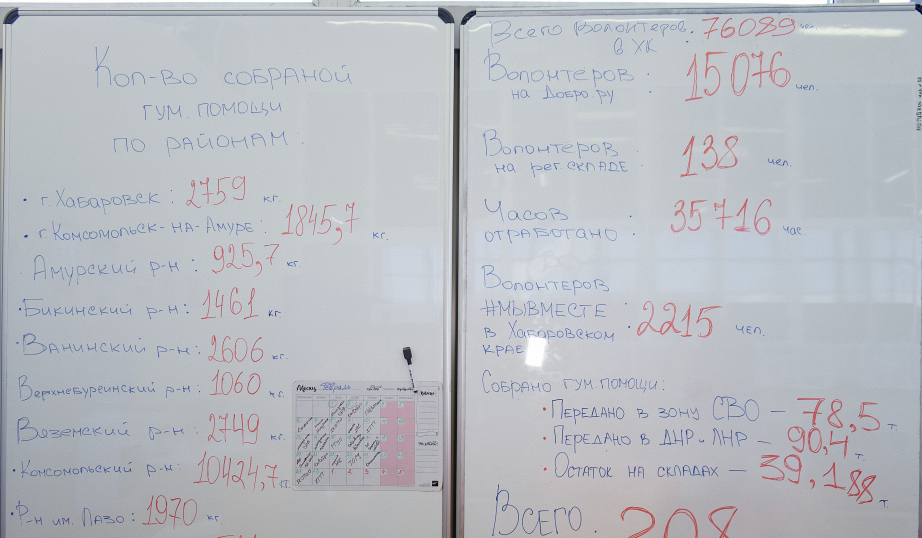 Кол-во собраной
гум. помощи
по районам:
• г. Хабаровск: 2759 кг.
• г. Комсомольск-на-Амуре: 1845,7 кг.
Амурский р-н: 925,7 кг.
• Бикинский р-н: 1461 кг.
• Ванинский р-н: 2606 кг.
Верхнебуреинский р-н: 1060 кг.
Вяземский р-н: 2749 кг.
• Комсомольский р-н: 10424,7 кг.
• Р-н им. Лазо: 1970 кг.
Месяц Февраль
Всего волонтеров: 76089 чел.
в ХК
Волонтеров
на Добро.ру : 15076 чел.
Волонтеров
на рег. складе : 138 чел.
Часов
отработано : 35716 час
Волонтеров
#МЫВМЕСТЕ
в Хабаровском : 2215 чел.
крае
Собрано гум. помощи:
• Передано в зону СВО – 78,5 т.
• Передано в ДНР и ЛНР – 90,4 т.
• Остаток на складах – 39,188 т.
Всего 208